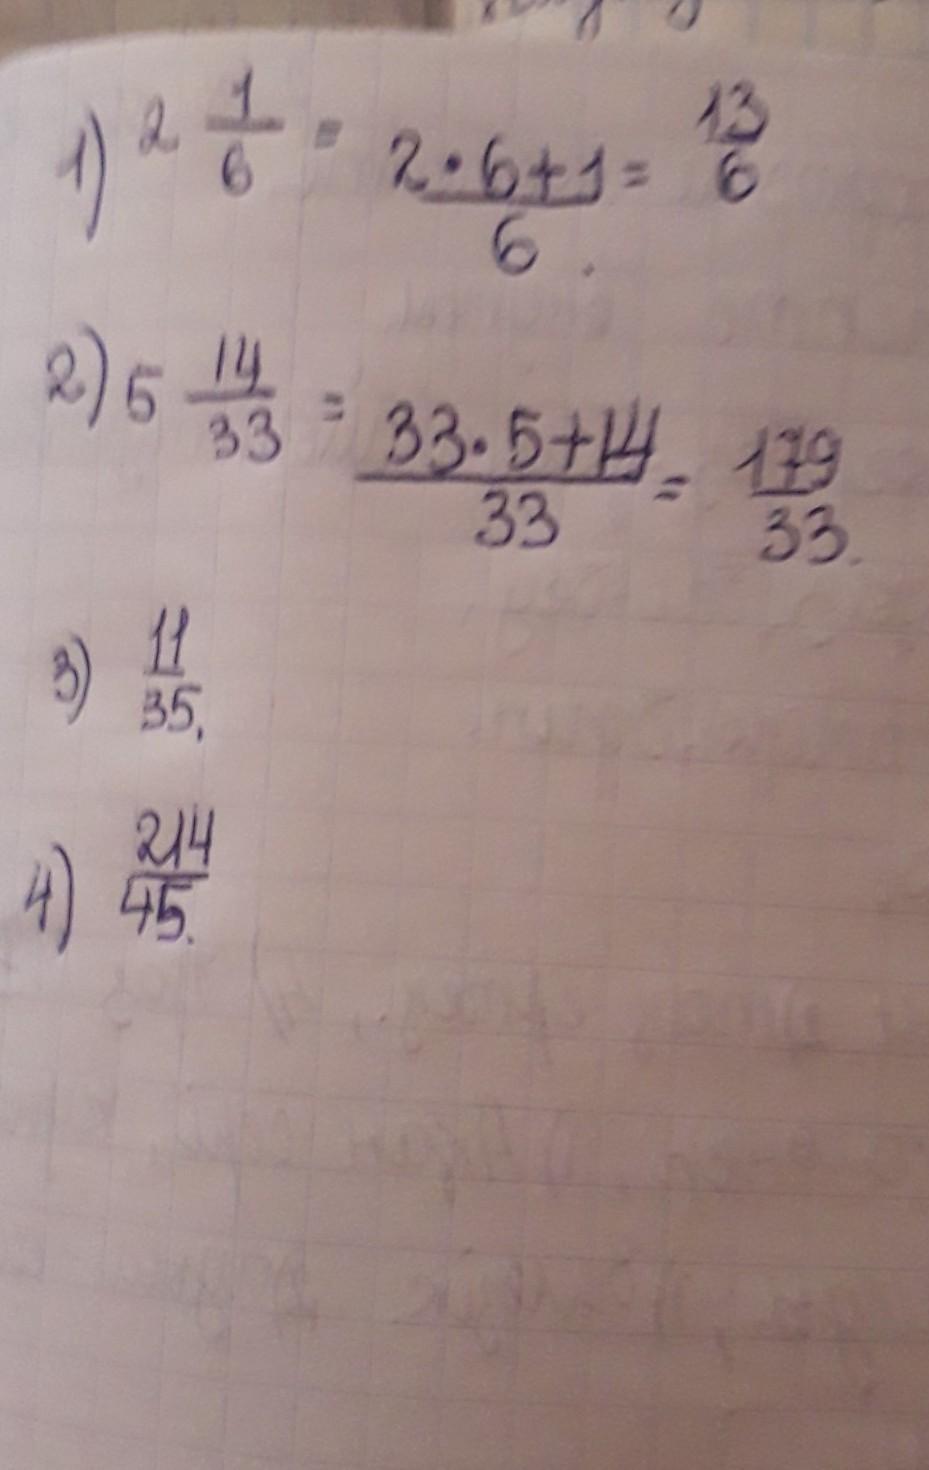 1) 2 1/6 = 2·6+1/6 = 13/6
2) 5 14/33 = 33·5+14/33 = 179/33.
3) 11/35.
4) 214/45.